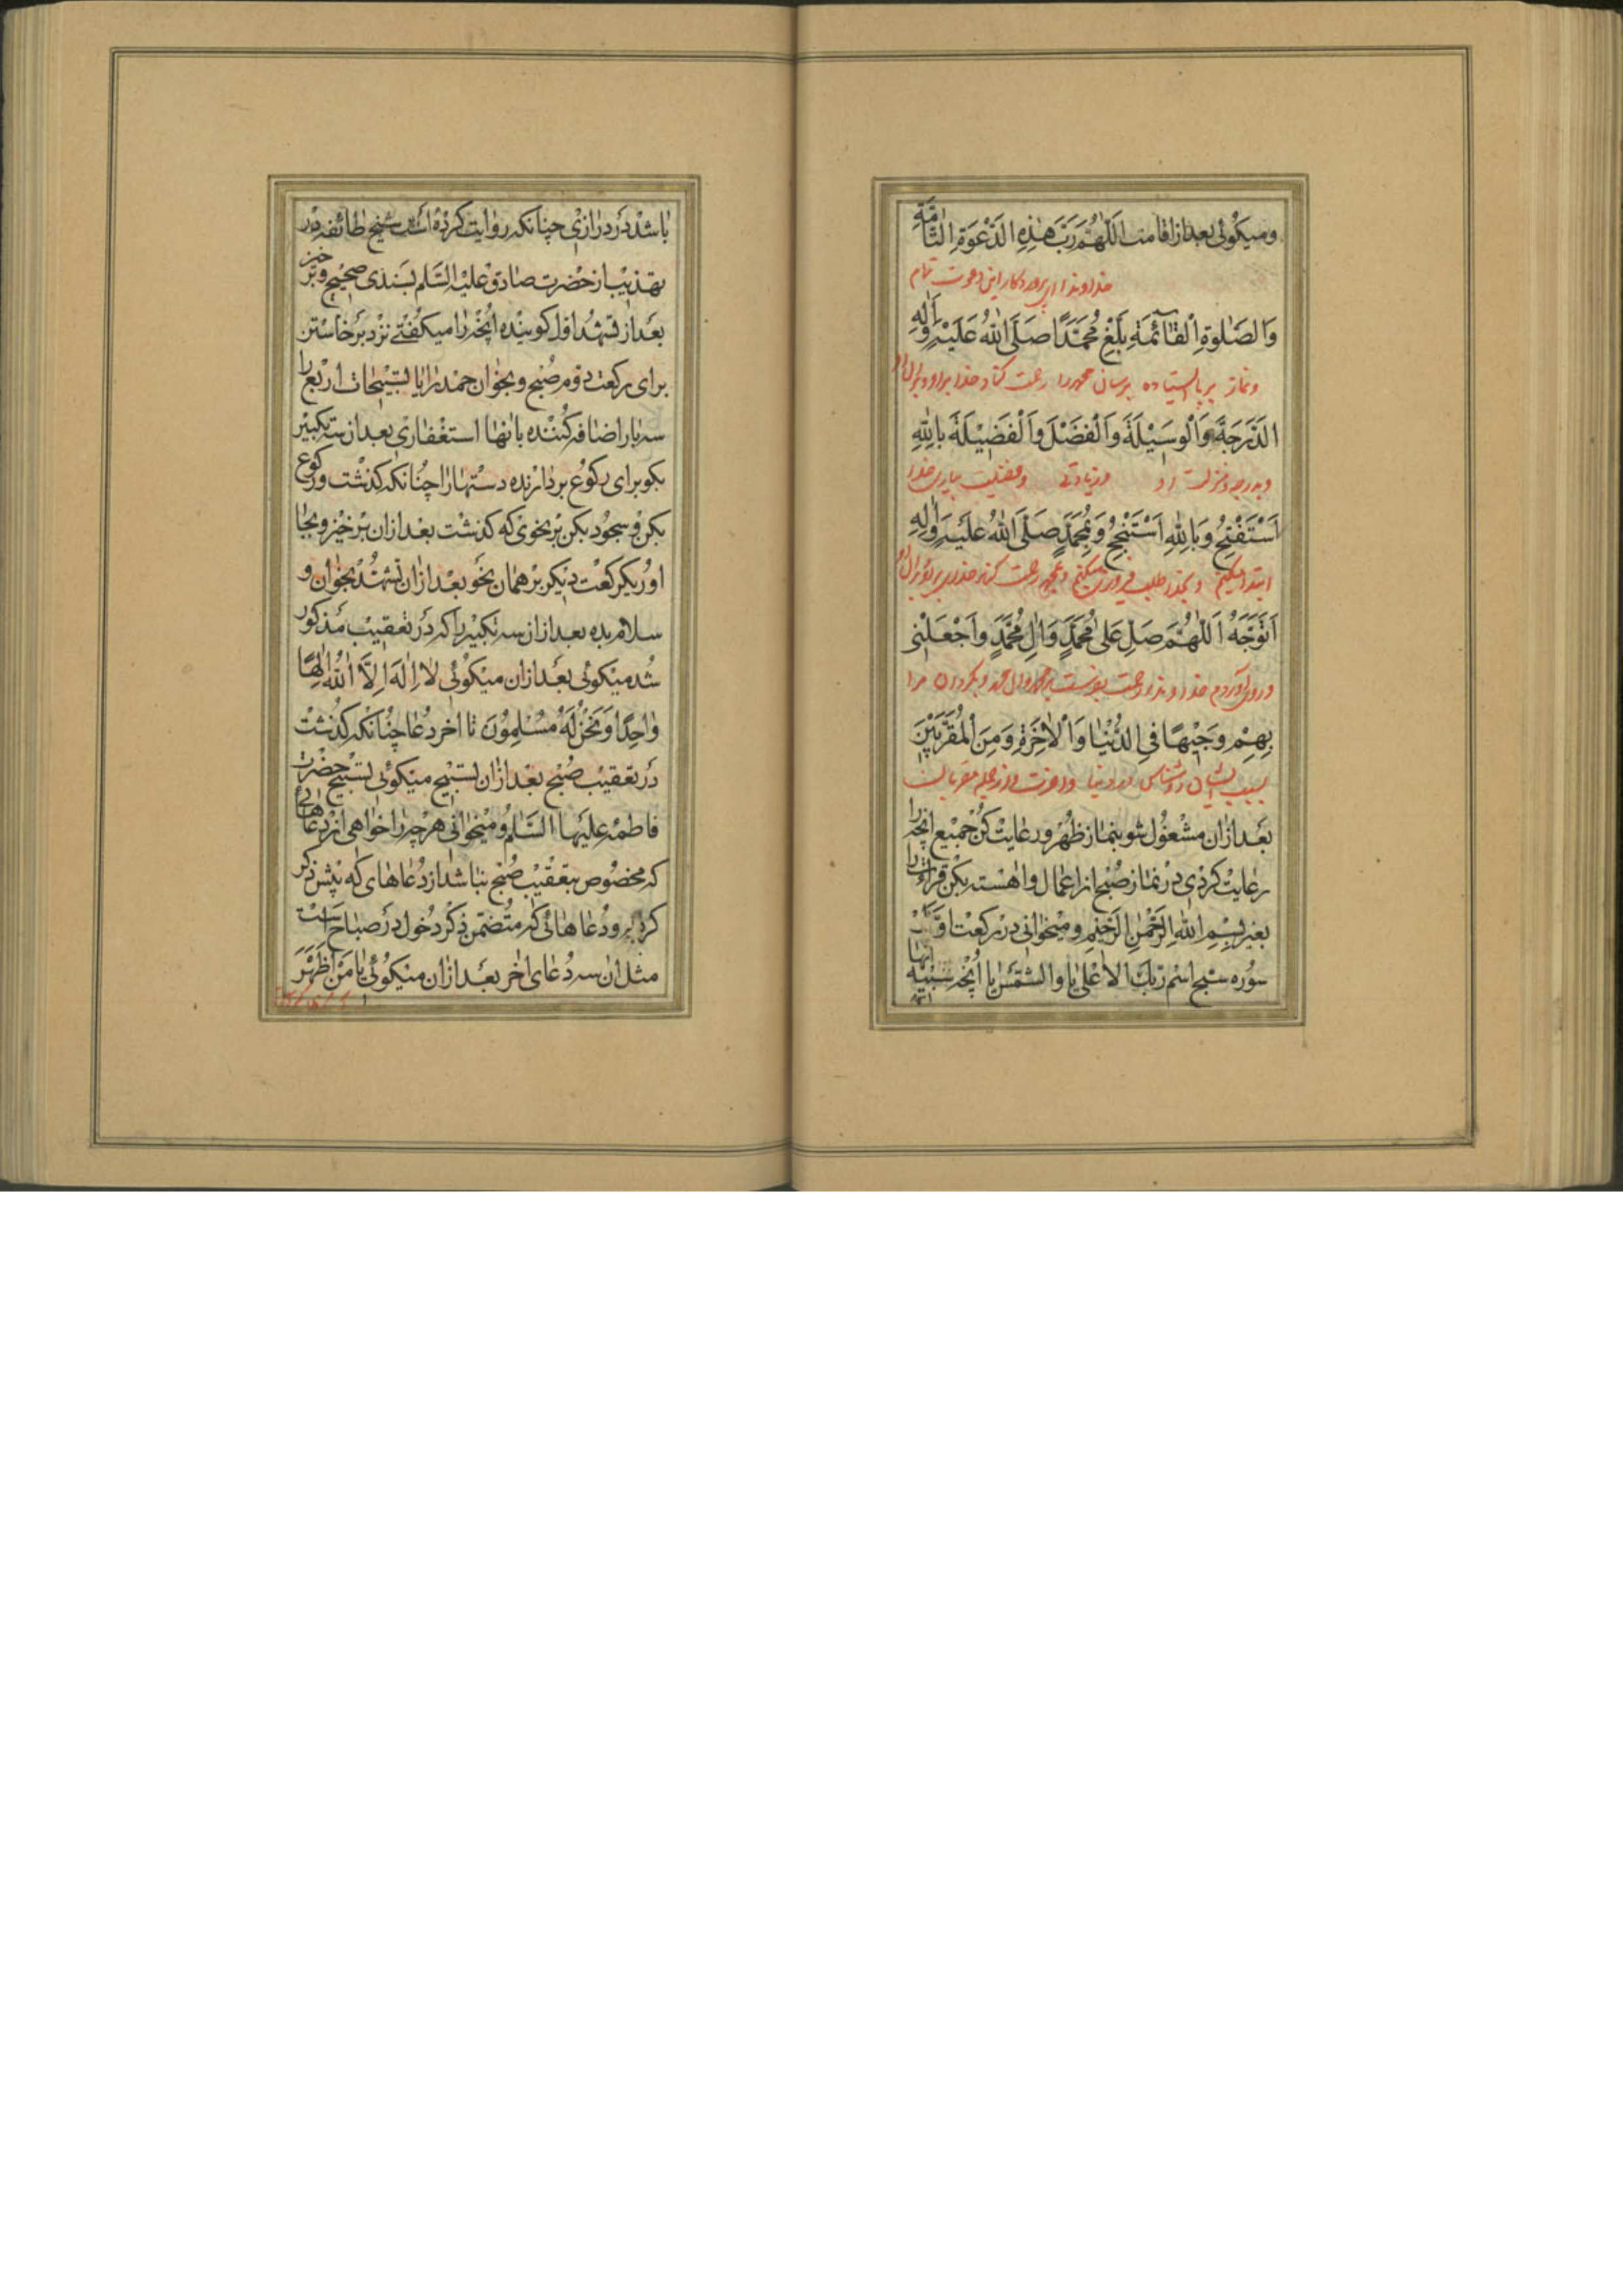 ومیکوئی بعد از اقامت اَللّٰهُمَّ رَبَّ هٰذِهِ الدَّعْوَةِ التّٰامَّةِ
خداوندا ای پروردکار این دعوت تمام
وَالصَّلٰوةِ الْقٰائِمَةِ بَلِّغْ مُحَمَّدًا صَلَّی اللّٰهُ عَلَیْهِ وَاٰلِهِ
ونماز بر پا ایستاده برسان محمد را رحمت کناد خدا بر او و بر آل او
الدَّرَجَةَ وَالْوَسِیْلَةَ وَالْفَضْلَ وَالْفَضِیْلَةَ بِاللّٰهِ
وبدرجه ومنزلت و زیادتی و فضیلت بیاری خدا
اَسْتَفْتِحُ وَبِاللّٰهِ اَسْتَنْجِحُ وَبِمُحَمَّدٍ صَلَّی اللّٰهُ عَلَیْهِ وَاٰلِهِ
ابتدا میکنم و بخدا طلب فیروزی میکنم و بمحمد رحمت کند خدا بر او و بر آل او
اَتَوَجَّهُ اَللّٰهُمَّ صَلِّ عَلیٰ مُحَمَّدٍ وَاٰلِ مُحَمَّدٍ وَاجْعَلْنِی
و روی آوردم خداوندا رحمت بفرست بر محمد وآل محمد و بکردان مرا
بِهِمْ وَجِیْهًا فِی الدُّنْیٰا وَالْاٰخِرَةِ وَمِنَ الْمُقَرَّبِیْنَ
بسبب ایشان روشناس در دنیا و آخرت و از جمله مقربان
بعد ازان مشغول شو بنماز ظهر و رعایت کن جمیع انچه را
رعایت کردی در نماز صبح از اعمال و اهسته بکن قراءت را
بغیر بسم الله الرحمن الرحیم ومیخوانی در رکعت اول
سوره سبح اسم ربک الاعلی یا والشمس یا انچه شبیه انها
باشد در درازی چنانکه روایت کرده است شیخ طائفه در
تهذیب از حضرت صادق علیه السلم بسندی صحیح وبر خیز
بعد از تشهد اول کوینده انچه را میکفتی نزد برخاستن
برای رکعت دوم صبح وبخوان حمد را یا تسبیحات اربع را
سه بار اضافه کننده بانها استغفاری بعد ازان سه تکبیر
بکو برای رکوع بردارنده دستها را چنانکه کذشت ورکوع
بکن و سجود بکن بر نحوی که کذشت بعد ازان برخیز وبجا
اور یکرکعت دیکر بر همان نحو بعد ازان تشهد بخوان و
سلام بده بعد ازان سه تکبیر را که در تعقیب مذکور
شد میکوئی بعد ازان میکوئی لا اِلٰهَ اِلَّا اللّٰهُ اِلٰهًا
وٰاحِدًا وَنَحْنُ لَهُ مُسْلِمُونَ تا اخر دعا چنانکه کذشت
در تعقیب صبح بعد ازان تسبیح میکوئی تسبیح حضرت
فاطمه علیها السلم ومیخوانی هرچه را خواهی از دعاهائی
که مخصوص بتعقیب صبح نباشد از دعاهای که پیش ذکر
کردیم و دعاهائی که متضمن ذکر دخول در صباح است
مثل ان سه دعای اخر بعد ازان میکوئی یا مَنْ اَظْهَرَ